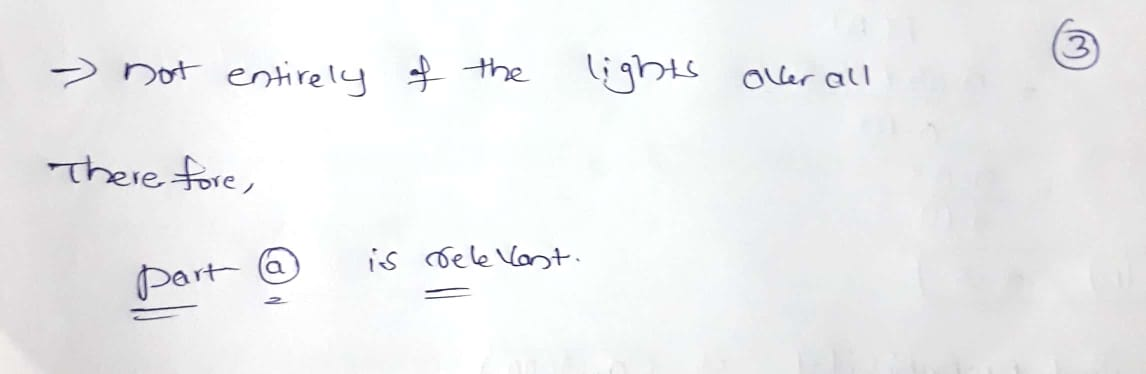 ③
→ not entirely of the lights over all
Therefore,
part ⓐ is relevant.